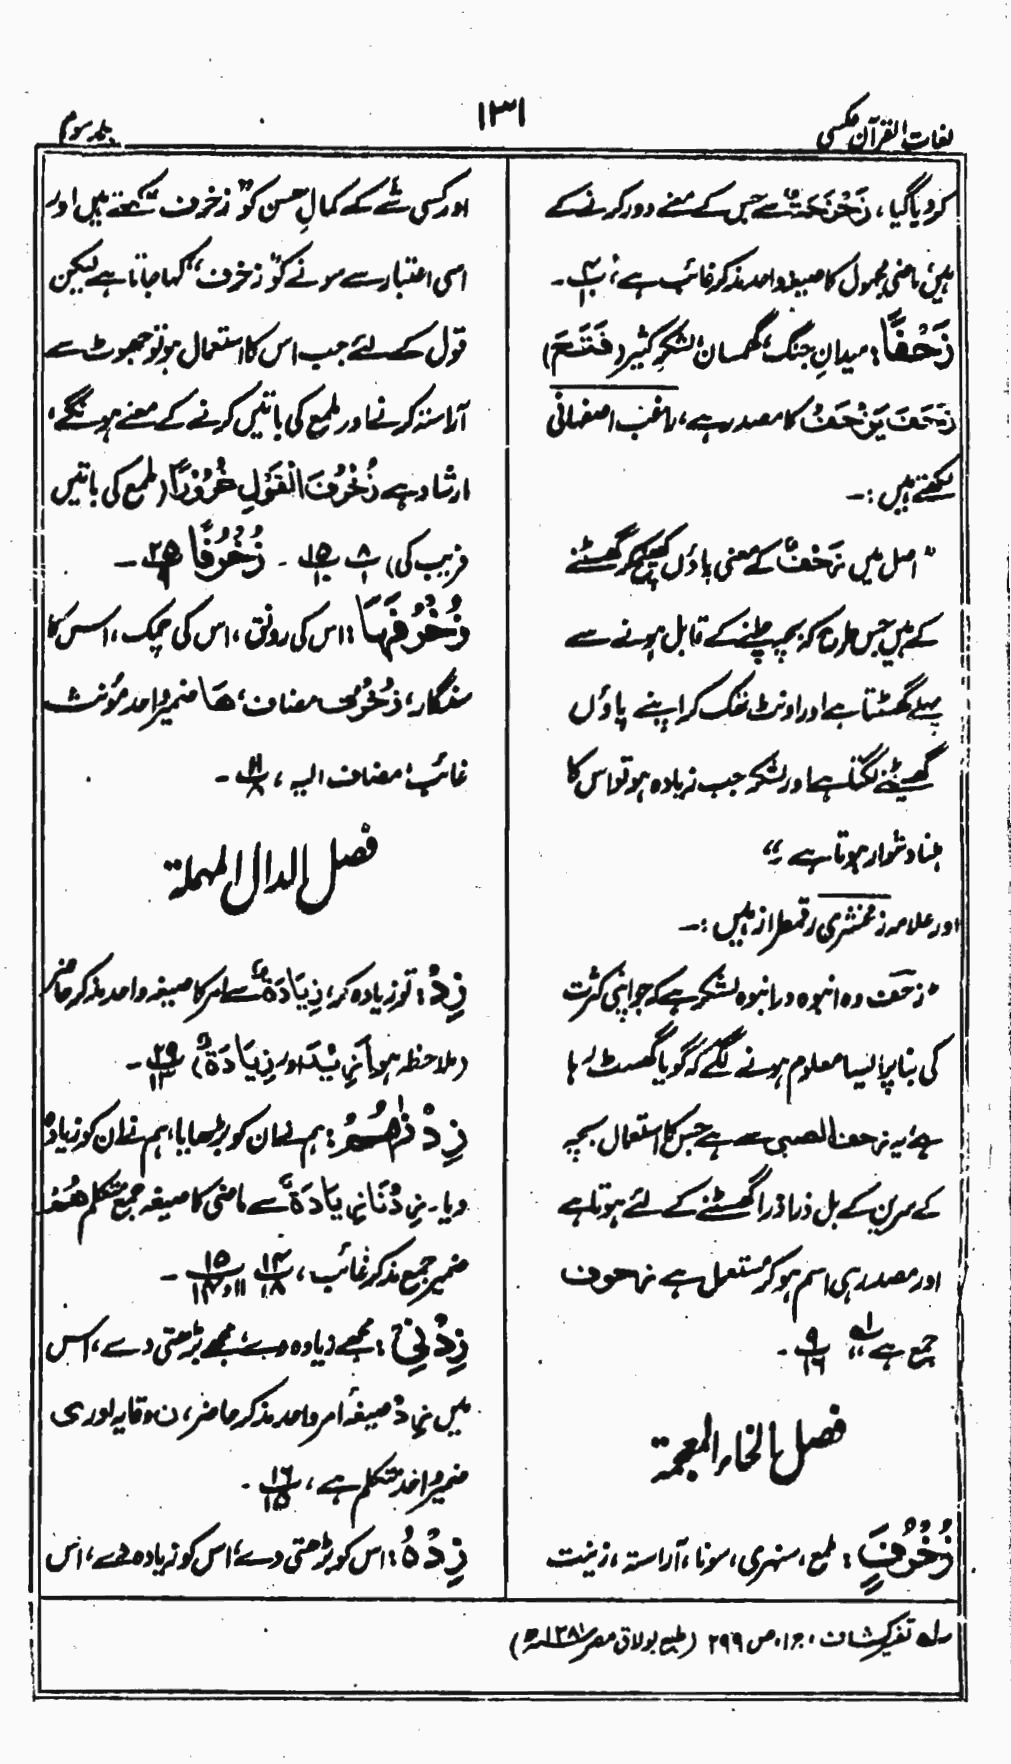 لغات القرآن عکسی
۱۳۱
جلد سوم
کر دیا گیا، زَحْزَحَۃٌ سے جس کے معنے دور کرنے کے
ہیں، ماضی مجہول کا صیغہ واحد مذکر غائب ہے،
زَحْفًا: میدانِ جنگ، گھمسان، لشکرِ کثیر (فَتَحَ)
زَحَفَ یَزْحَفُ کا مصدر ہے، راغب اصفہانی
لکھتے ہیں :-
"اصل میں زَحْفٌ کے معنی پاؤں کھینچ کر گھسٹنے
کے ہیں جس طرح کہ بچہ چلنے کے قابل ہونے سے
پہلے گھسٹتا ہے اور اونٹ تھک کر اپنے پاؤں
گھسیٹنے لگتا ہے اور لشکر جب زیادہ ہو تو اس کا
چلنا دشوار ہوتا ہے"
اور علامہ زمخشری رقمطراز ہیں :-
"زحف وہ انبوہ در انبوہ لشکر ہے کہ جو اپنی کثرت
کی بنا پر ایسا معلوم ہونے لگے کہ گویا گھسٹ رہا
ہے، یہ زحف الصبی سے ہے جس کا استعمال بچہ
کے سرین کے بل ذرا ذرا گھسٹنے کے لئے ہوتا ہے
اور مصدر ہی اسم ہو کر مستعمل ہے زحوف
جمع ہے" ۹/۱۶ -
فصل الخاء المعجمۃ
زُخْرُفٍ: ملمع، سنہری، سونا، آراستہ، زینت
اور کسی شے کے کمالِ حسن کو "زخرف" کہتے ہیں اور
اسی اعتبار سے سونے کو "زخرف" کہا جاتا ہے لیکن
قول کے لئے جب اس کا استعمال ہو تو جھوٹ سے
آراستہ کرنے اور ملمع کی باتیں کرنے کے معنے ہونگے،
ارشاد ہے زُخْرُفَ الْقَوْلِ غُرُوْرًا (ملمع کی باتیں
فریب کی) ۸/۱ ۱۵/۱۰ - زُخْرُفًا ۲۵/۹ -
زُخْرُفَہَا: اس کی رونق، اس کی چمک، اس کا
سنگار، زُخْرُف مضاف، ھَا ضمیر واحد مؤنث
غائب، مضاف الیہ، ۱۱/۸ -
فصل الدال المہملۃ
زِدْ: تو زیادہ کر، زِیَادَۃٌ سے امر کا صیغہ واحد مذکر حاضر
(ملاحظہ ہو اَزِیْدَ اور زِیَادَۃٌ) ۲۹/۱۳ -
زِدْنٰھُمْ: ہم نے ان کو بڑھایا، ہم نے ان کو زیادہ
دیا۔ زِدْنَا زِیَادَۃٌ سے ماضی کا صیغہ جمع متکلم ھُمْ
ضمیر جمع مذکر غائب، ۱۴/۱۸ ۱۵/۱۱و۱۳ -
زِدْنِیْ: مجھے زیادہ دے، مجھے بڑھتی دے، اس
میں زِدْ صیغہ امر واحد مذکر حاضر، ن وقایہ اور ی
ضمیر واحد متکلم ہے، ۱۶/۱۵ -
زِدْہُ: اس کو بڑھتی دے، اس کو زیادہ دے، اس
لہ تفسیر کشاف، ج۱، ص ۲۹۹ (طبع بولاق مصر ۱۲۸۱ھ)